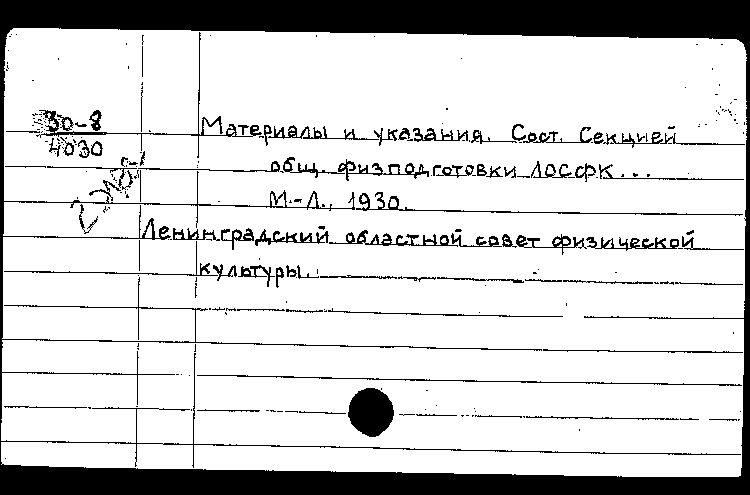 30-8
4030
Материалы и указания. Сост. Секцией
общ. физподготовки ЛОСФК...
М.-Л., 1930.
Ленинградский областной совет физической
культуры.